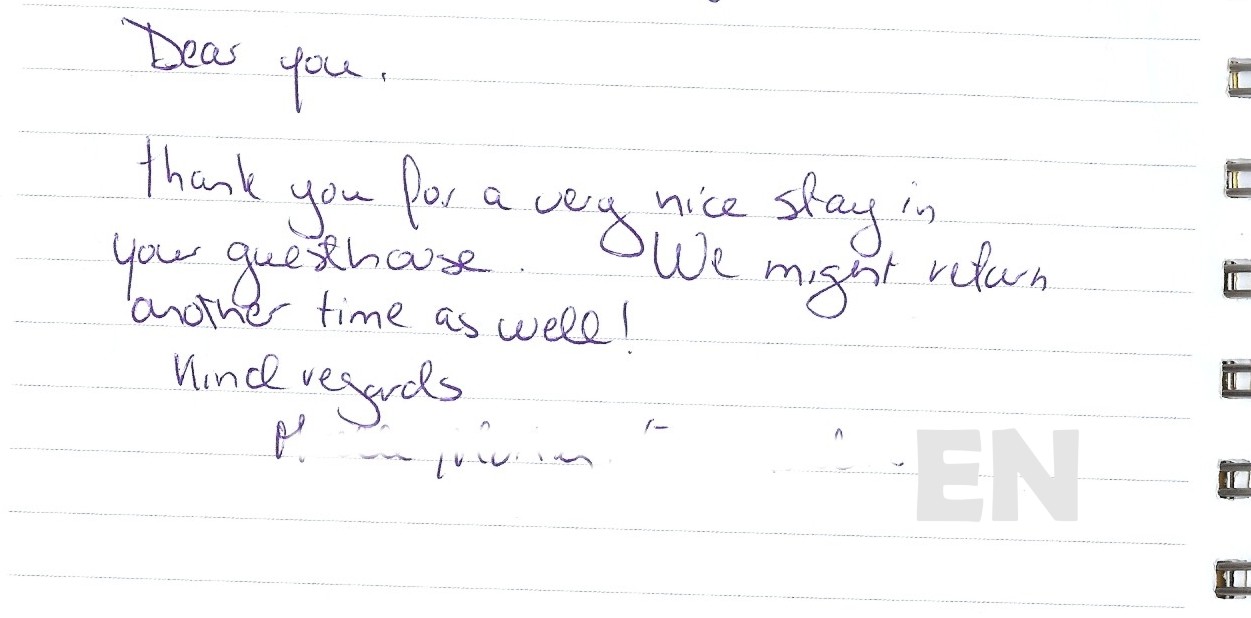 Dear you,
thank you for a very nice stay in
your guesthouse. We might return
another time as well!
Kind regards
EN